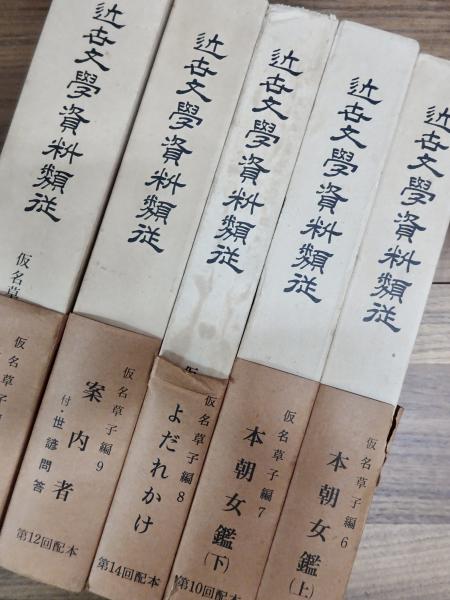 近世文學資料類従
仮名草子編6
本朝女鑑(上)
近世文學資料類従
仮名草子編7
本朝女鑑(下)
第10回配本
近世文學資料類従
仮名草子編8
よだれかけ
第14回配本
近世文學資料類従
仮名草子編9
案内者
付・世諺問答
第12回配本
近世文學資料類従
仮名草